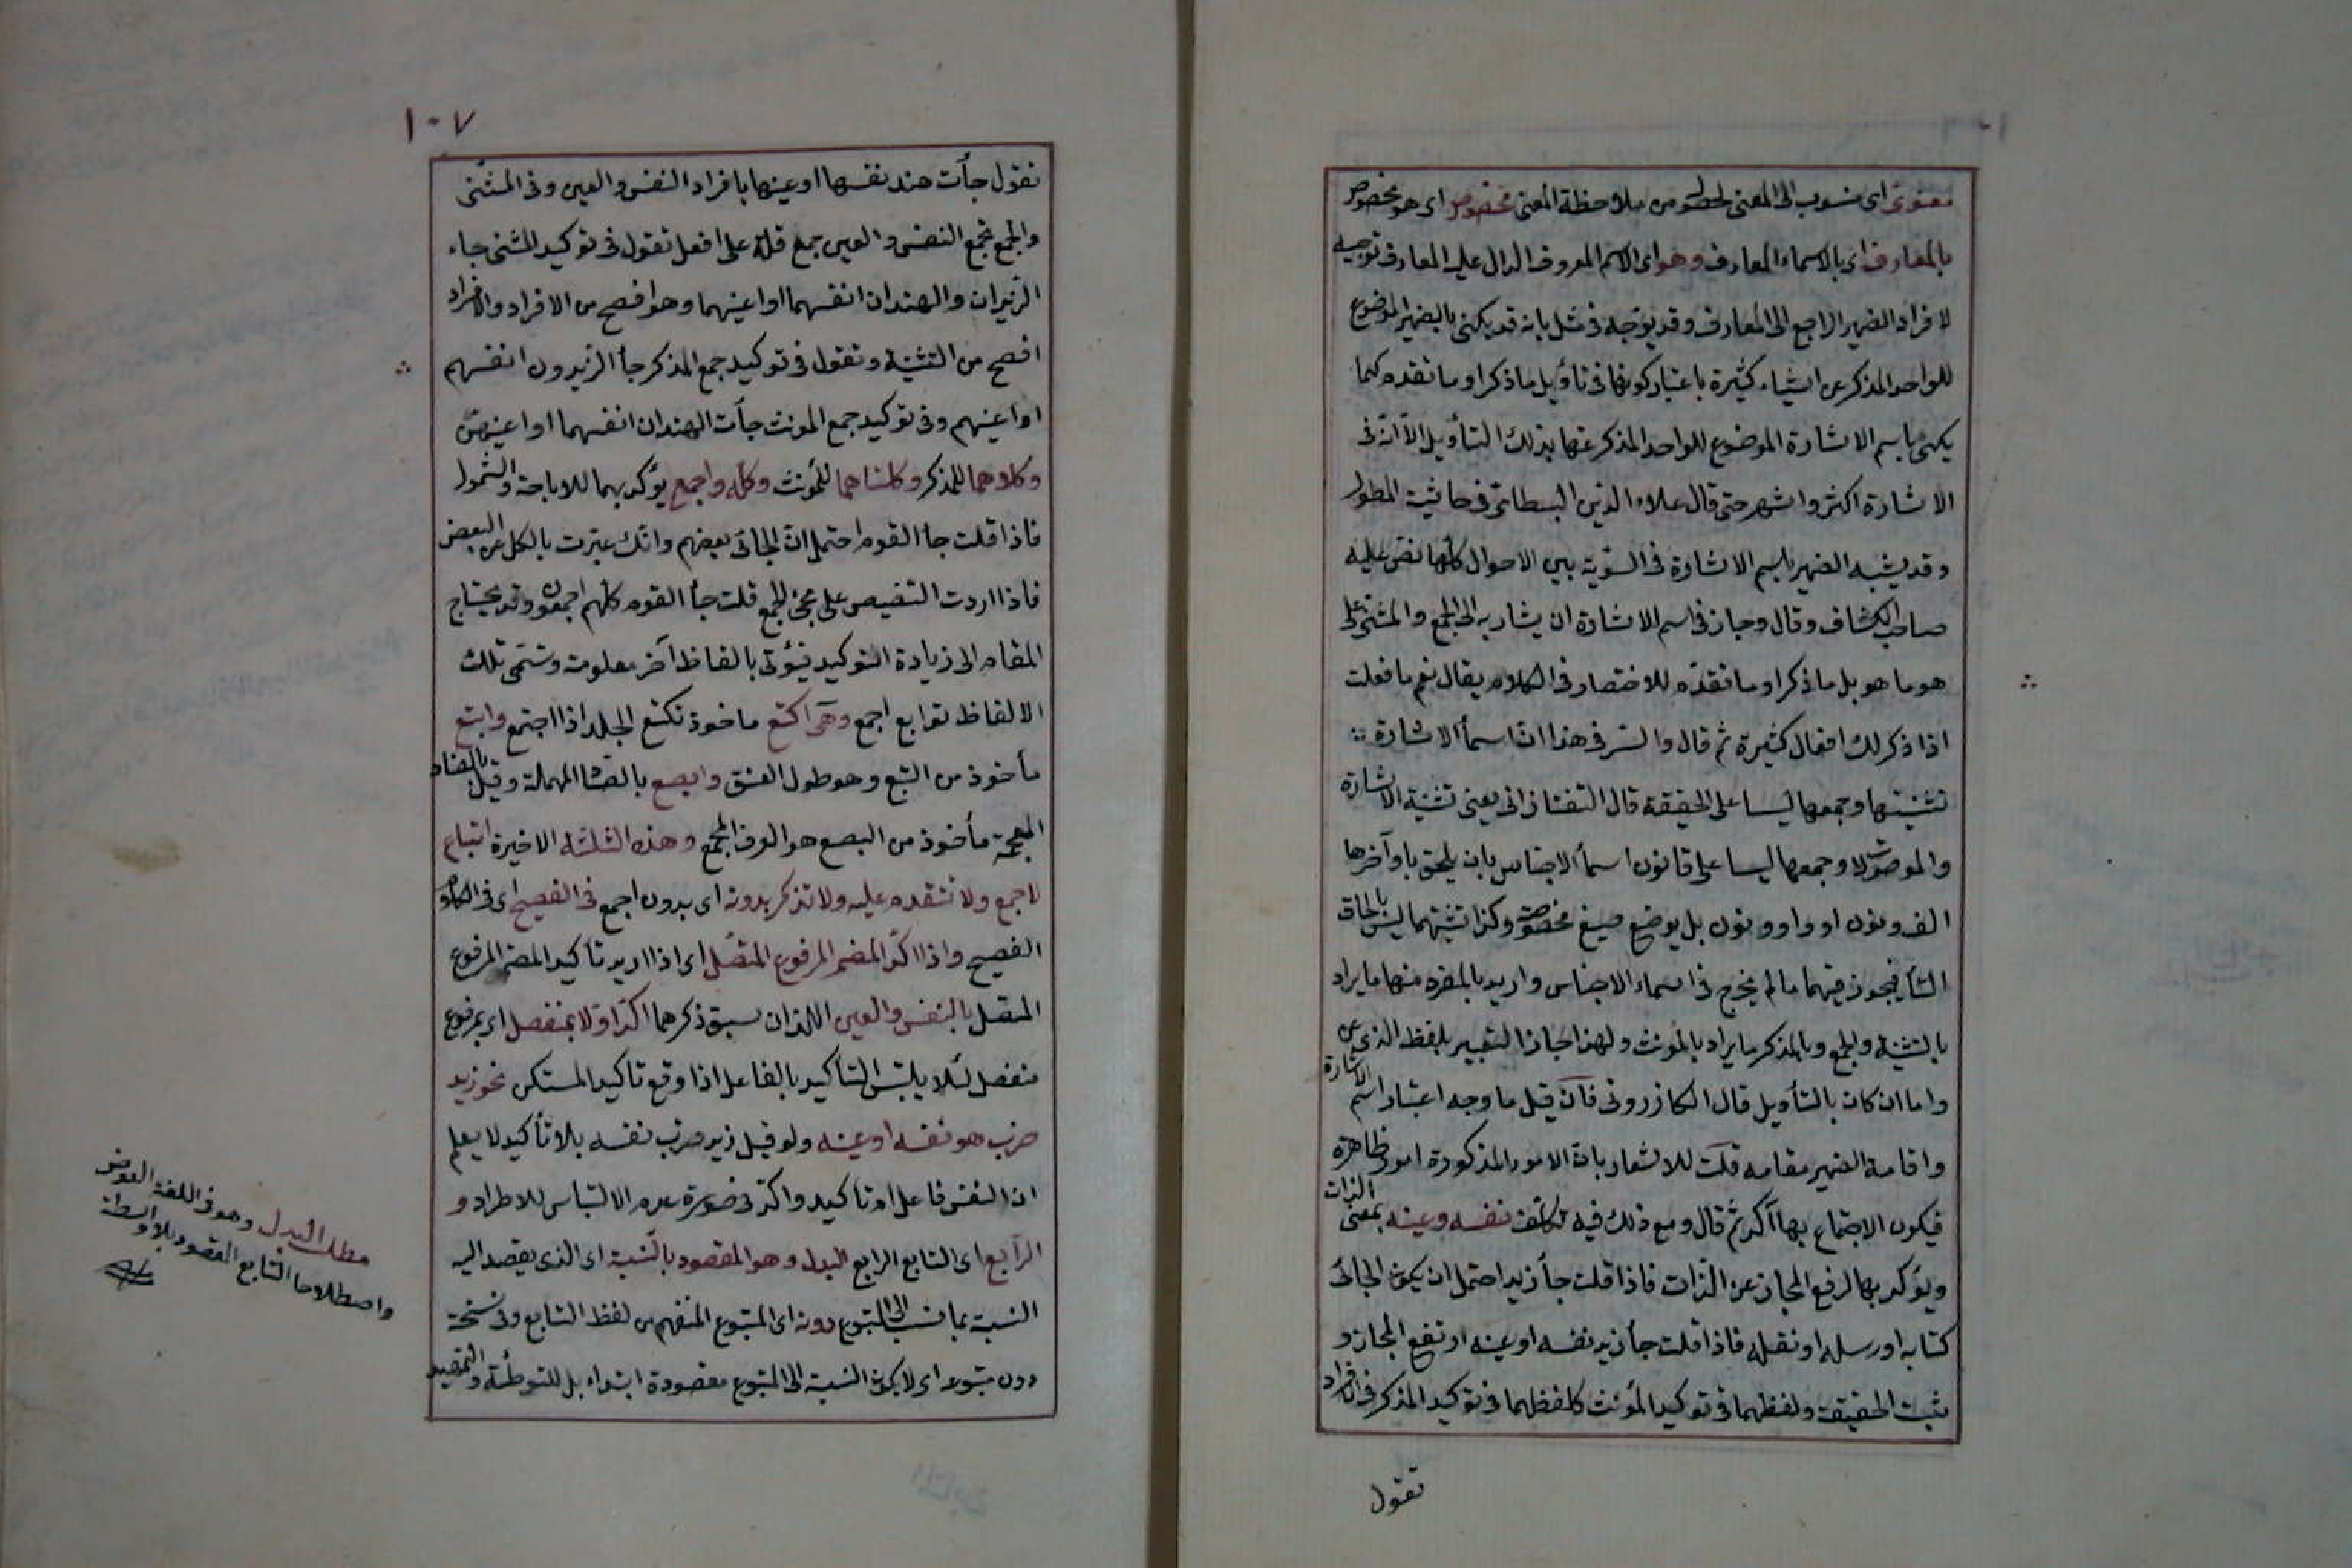 معنوى اى منسوب الى المعنى لحصوله من ملاحظة المعنى مخصوص اى هو مخصوص
بالمعارف اى بالاسماء المعارف وهو اى الاسم المعروف الدال عليه المعارف توجيه
لافراد الضمير الراجع الى المعارف وقد يوجه فى مثل بانه قد يكنى بالضمير الموضوع
للواحد المذكر عن اشياء كثيرة باعتبار كونها فى تأويل ما ذكر او ما تقدم كما
يكنى باسم الاشارة الموضوع للواحد المذكر عنها بذلك التأويل الا انه فى
الاشارة اكثر واشهر حتى قال علاء الدين البسطامى فى حاشية المطول
وقد يشبه الضمير باسم الاشارة فى السوية بين الاحوال كلها نص عليه
صاحب الكشاف وقال وجاز فى اسم الاشارة ان يشار به الى الجمع والمثنى على
هو ما هو بل ما ذكر او ما تقدم للاختصار فى الكلام يقال نعم ما فعلت
اذا ذكر لك افعال كثيرة ثم قال والسر فى هذا ان اسمأ الاشارة
تثنيتها وجمعها ليسا على الحقيقة قال التفتازانى يعنى تثنية الاشارة
والموصولات وجمعها ليسا على قانون اسمأ الاجناس بان يلحق باواخرها
الف ونون او واو ونون بل يوضع صيغ مخصوصة وكذا تثنيتهما ليس بالحاق
التأ فيجوز فيهما ما لم يخرج فى اسماء الاجناس واريد بالمفرد منها ما يراد
بالتثنية والجمع وبالمذكر ما يراد بالمونث ولهذا جاز التعبير بلفظ الذى عن
واما ان كان بالتأويل قال الكازرونى فان قيل ما وجه اعتبار اسم الاشارة
واقامة الضمير مقامه قلت للاشعار بان الامور المذكورة امور ظاهرة
فيكون الاجتماع بها آكد ثم قال ومع ذلك فيه تكلف نفسه وعينه بمعنى الذات
ويؤكد بها لرفع المجاز عن الذات فاذا قلت جأ زيد احتمل ان يكون الجائى
كتابه او رسله او نقله فاذا قلت جأ زيد نفسه او عينه ارتفع المجاز و
ثبت الحقيقة ولفظهما فى توكيد المؤنث كلفظهما فى توكيد المذكر فى الافراد
تقول
١٠٧
تقول جأت هند نفسها او عينها بافراد النفس والعين وفى المثنى
والجمع تجمع النفس والعين جمع قلة على افعل تقول فى توكيد المثنى جاء
الزيدان والهندان انفسهما او اعينهما وهو افصح من الافراد والافراد
افصح من التثنية وتقول فى توكيد جمع المذكر جأ الزيدون انفسهم
او اعينهم وفى توكيد جمع المونث جأت الهندان انفسهما او اعينهن
وكلاهما للمذكر وكلتاهما للمؤنث وكله واجمع يؤكد بهما للاباحة والشمول
فاذا قلت جأ القوم احتمل ان الجائى بعضهم وانك عبرت بالكل عن البعض
فاذا اردت التنصيص على مجئ الجمع قلت جأ القوم كلهم اجمعون وقد يحتاج
المقام الى زيادة التوكيد فيؤتى بالفاظ آخر معلومة وتسمى تلك
الالفاظ توابع اجمع وهى اكتع ماخوذ تكتع الجلد اذا اجتمع وابتع
مأخوذ من البتع وهو طول العنق وابصع بالصا المهملة وقيل بالضاد
المعجمة مأخوذ من البصع هو العرف المجمع وهذه الثلثة الاخيرة اتباع
لاجمع ولا تتقدم عليه ولا تذكر بدونه اى بدون اجمع فى الفصيح اى فى الكلام
الفصيح واذا اكد المضمر المرفوع المتصل اى اذا اريد تأكيد المضمر المرفوع
المتصل بالنفس والعين اللذان سبق ذكرهما اكد اولا بمنفصل اى بمرفوع
منفصل لئلا يلتبس التأكيد بالفاعل اذا وقع تاكيد المستكن نحو زيد
ضرب هو نفسه او عينه ولو قيل زيد ضرب نفسه بلا تأكيد لا يعلم
ان النفس فاعل او تاكيد واكد فى صورة عدم الالتباس للاطراد و
الرابع اى التابع الرابع البدل وهو المقصود بالنسبة اى الذى يقصد اليه
النسبة بما نسب الى المتبوع دونه اى المتبوع المنفهم من لفظ التابع وفى نسخة
دون متبوعه اى لا يكون النسبة الى المتبوع مقصودة ابتداء بل للتوطئة والتمهيد
مطلب البدل وهو فى اللغة العوض
واصطلاحا التابع المقصود بلا واسطة